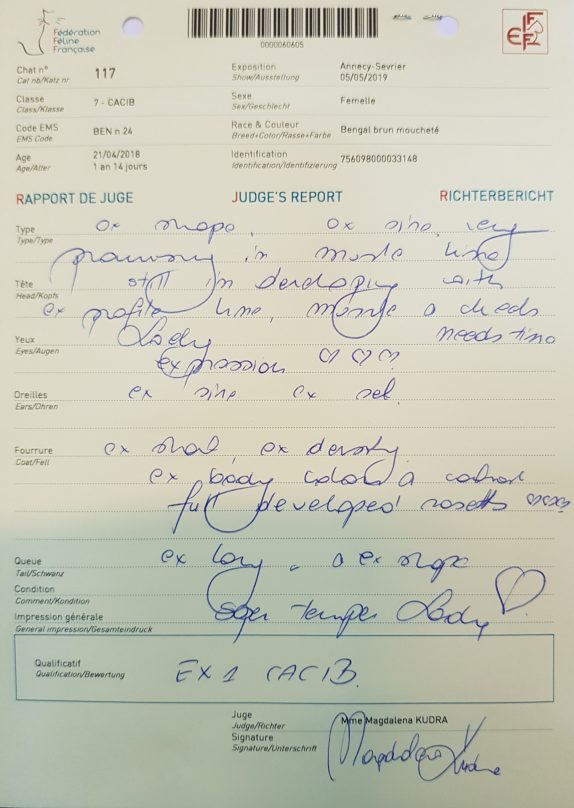 Fédération
Féline
Française
0000060605
FIFe
Chat n° 117 Exposition Annecy-Sevrier
Cat nb/Katz nr Show/Ausstellung 05/05/2019
Classe 7 - CACIB Sexe Femelle
Class/Klasse Sex/Geschlecht
Code EMS BEN n 24 Race & Couleur Bengal brun moucheté
EMS Code Breed+Color/Rasse+Farbe
Age 21/04/2018 Identification 756098000033148
Age/Alter 1 an 14 jours Identification/Identifizierung
RAPPORT DE JUGE JUDGE'S REPORT RICHTERBERICHT
Type ex shape, ex size, very
Type/Type
promising in muzzle line
Tête still in developing with
Head/Kopfs
ex profile line, muzzle a cheeks
needs time
Yeux Lady
Eyes/Augen
expression ♡♡♡
Oreilles ex size ex set.
Ears/Ohren
Fourrure ex density
Coat/Fell
ex body color a contrast
full developed rosetts ♡♡♡
Queue ex long a ex shape
Tail/Schwanz
Condition
Comment/Kondition
Impression générale temper Lady ♡
General impression/Gesamteindruck
Qualificatif EX 1 CACIB
Qualification/Bewertung
Juge Mme Magdalena KUDRA
Judge/Richter
Signature Magdalena Kudra
Signature/Unterschrift